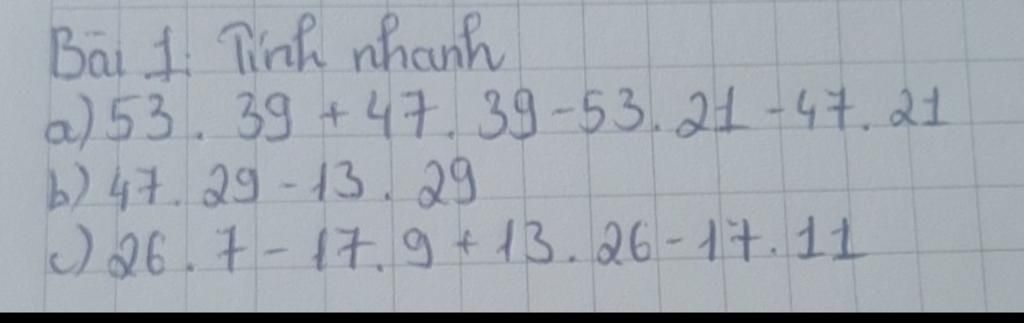 Bài 1: Tính nhanh
a) 53 . 39 + 47 . 39 - 53 . 21 - 47 . 21
b) 47 . 29 - 13 . 29
c) 26 . 7 - 17 . 9 + 13 . 26 - 17 . 11